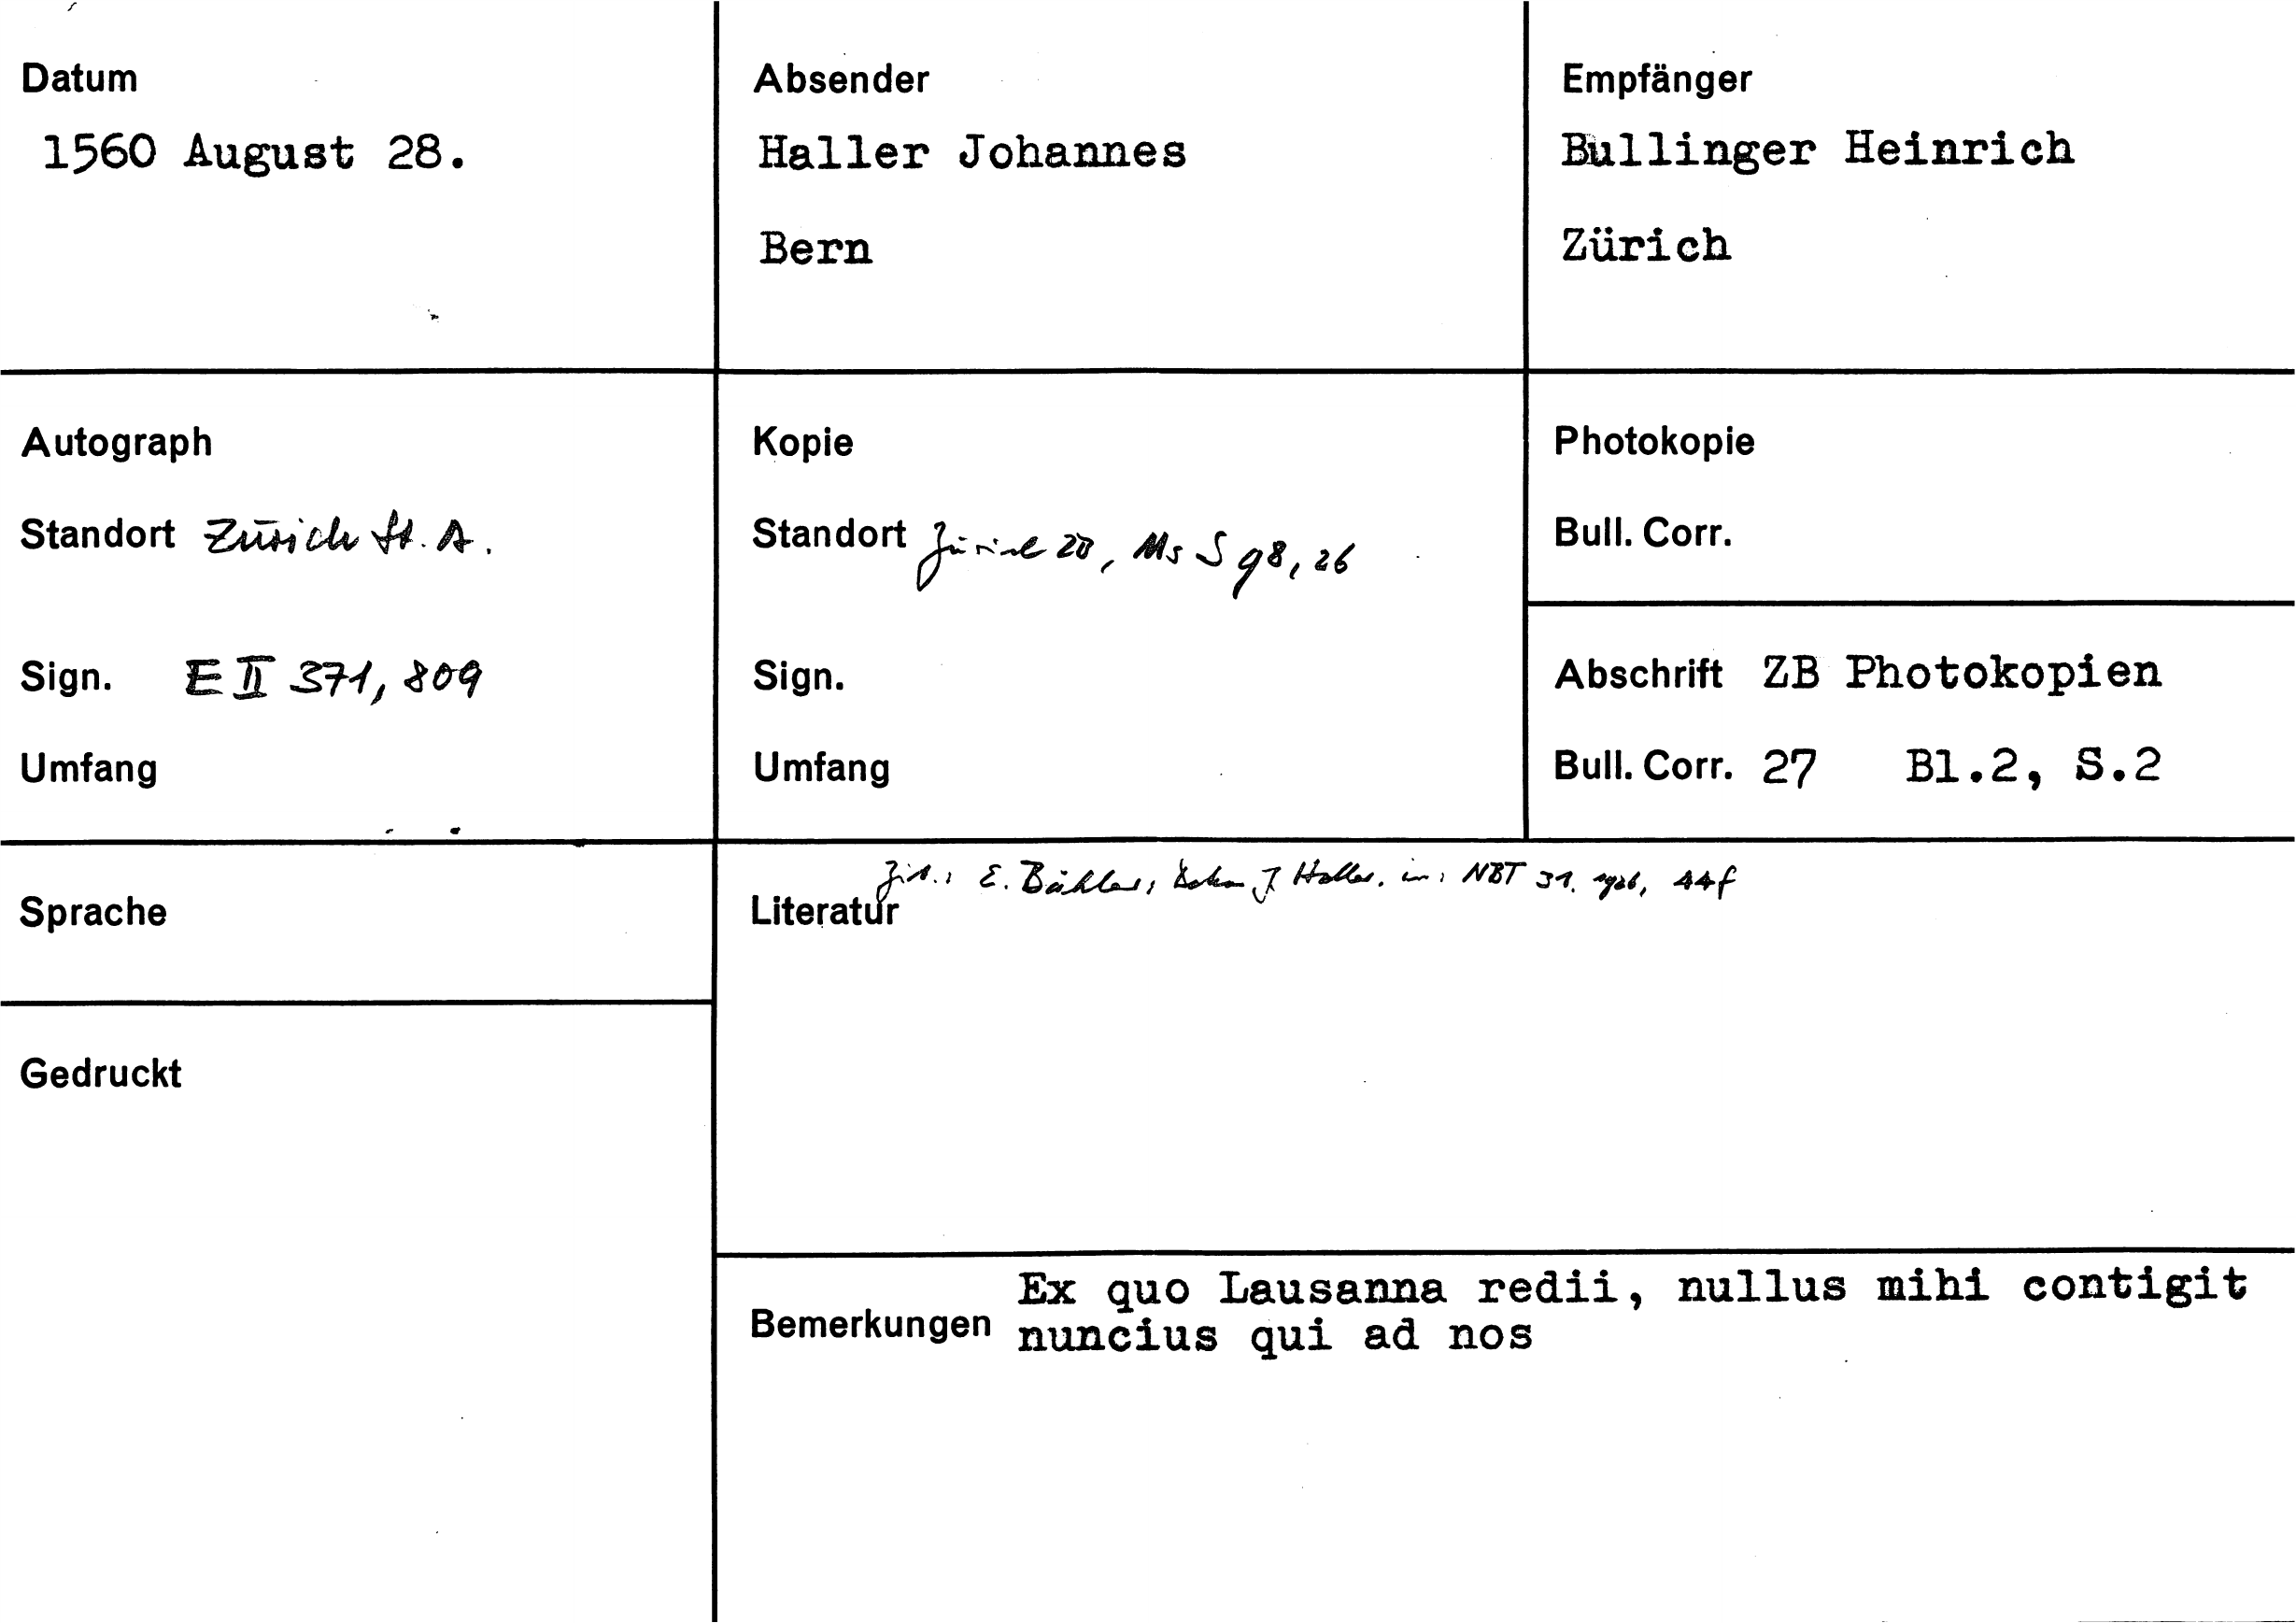 Datum
1560 August 28.
Absender
Haller Johannes
Bern
Empfänger
Bullinger Heinrich
Zürich
Autograph
Standort Zürich St. A.
Sign. E II 371, 809
Umfang
Kopie
Standort Zürich ZB, Ms S 98, 26
Sign.
Umfang
Photokopie
Bull. Corr.
Abschrift ZB Photokopien
Bull. Corr. 27 Bl.2, S.2
Sprache
Gedruckt
Zit.: E. Bähler, J Haller. in: NBT 31. 1926, 44f
Literatur
Ex quo Lausanna redii, nullus mihi contigit
Bemerkungen nuncius qui ad nos